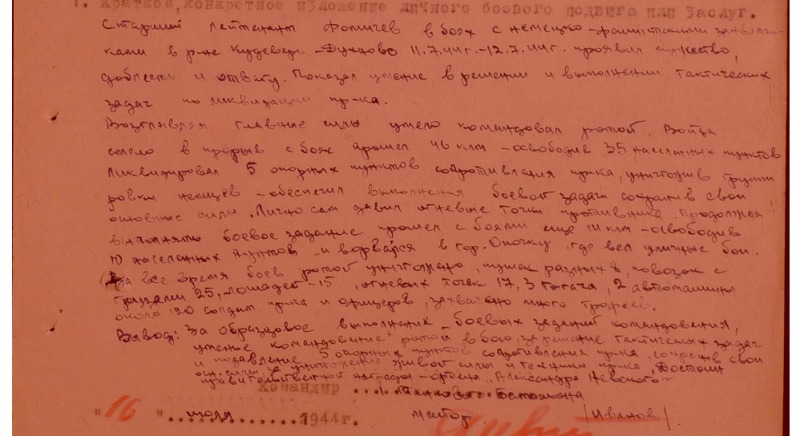 1. Краткое, конкретное изложение личного боевого подвига или заслуг.
Старший лейтенант Фомичев в боях с немецко-фашистскими захватчи-
ками в р-не Кудеверь - Духново 11.7.44г.-12.7.44г. проявил мужество,
доблесть и отвагу. Показал умение в решении и выполнении тактических
задач по ликвидации пр-ка.
Возглавляя главные силы умело командовал ротой. Войдя
смело в прорыв с боях прошел 46 клм - освободив 35 населенных пунктов
ликвидировал 5 опорных пунктов сопротивления пр-ка, уничтожив групи
ровки немцев - обеспечил выполнения боевой задачи сохранив свои
основные силы. Лично сам огневые точки противника. Продолжая
выполнять боевое задание прошел с боями еще клм - освободив
10 населенных пунктов и ворвался в гор. Опочку, где вел уличные бои.
За все время боев ротой уничтожено, пушек разных 8, повозок с
грузами 25, лошадей - 15, огневых точек 17, 3 тягача, 2 автомашины
около 120 солдат пр-ка и офицеров, захвачено много трофеев.
Вывод: За образцовое выполнение боевых заданий командования,
умение командование ротой в бою, за решение тактических задач
и подавление 5 опорных пунктов сопротивления пр-ка, сохранив свои
осн. силы, за уничтожение живой силы и техники пр-ка. Достоин
правительственной награды - ордена „Александра Невского"
Командир Танкового батальона
"16" июля 1944г. Майор /Иванов/